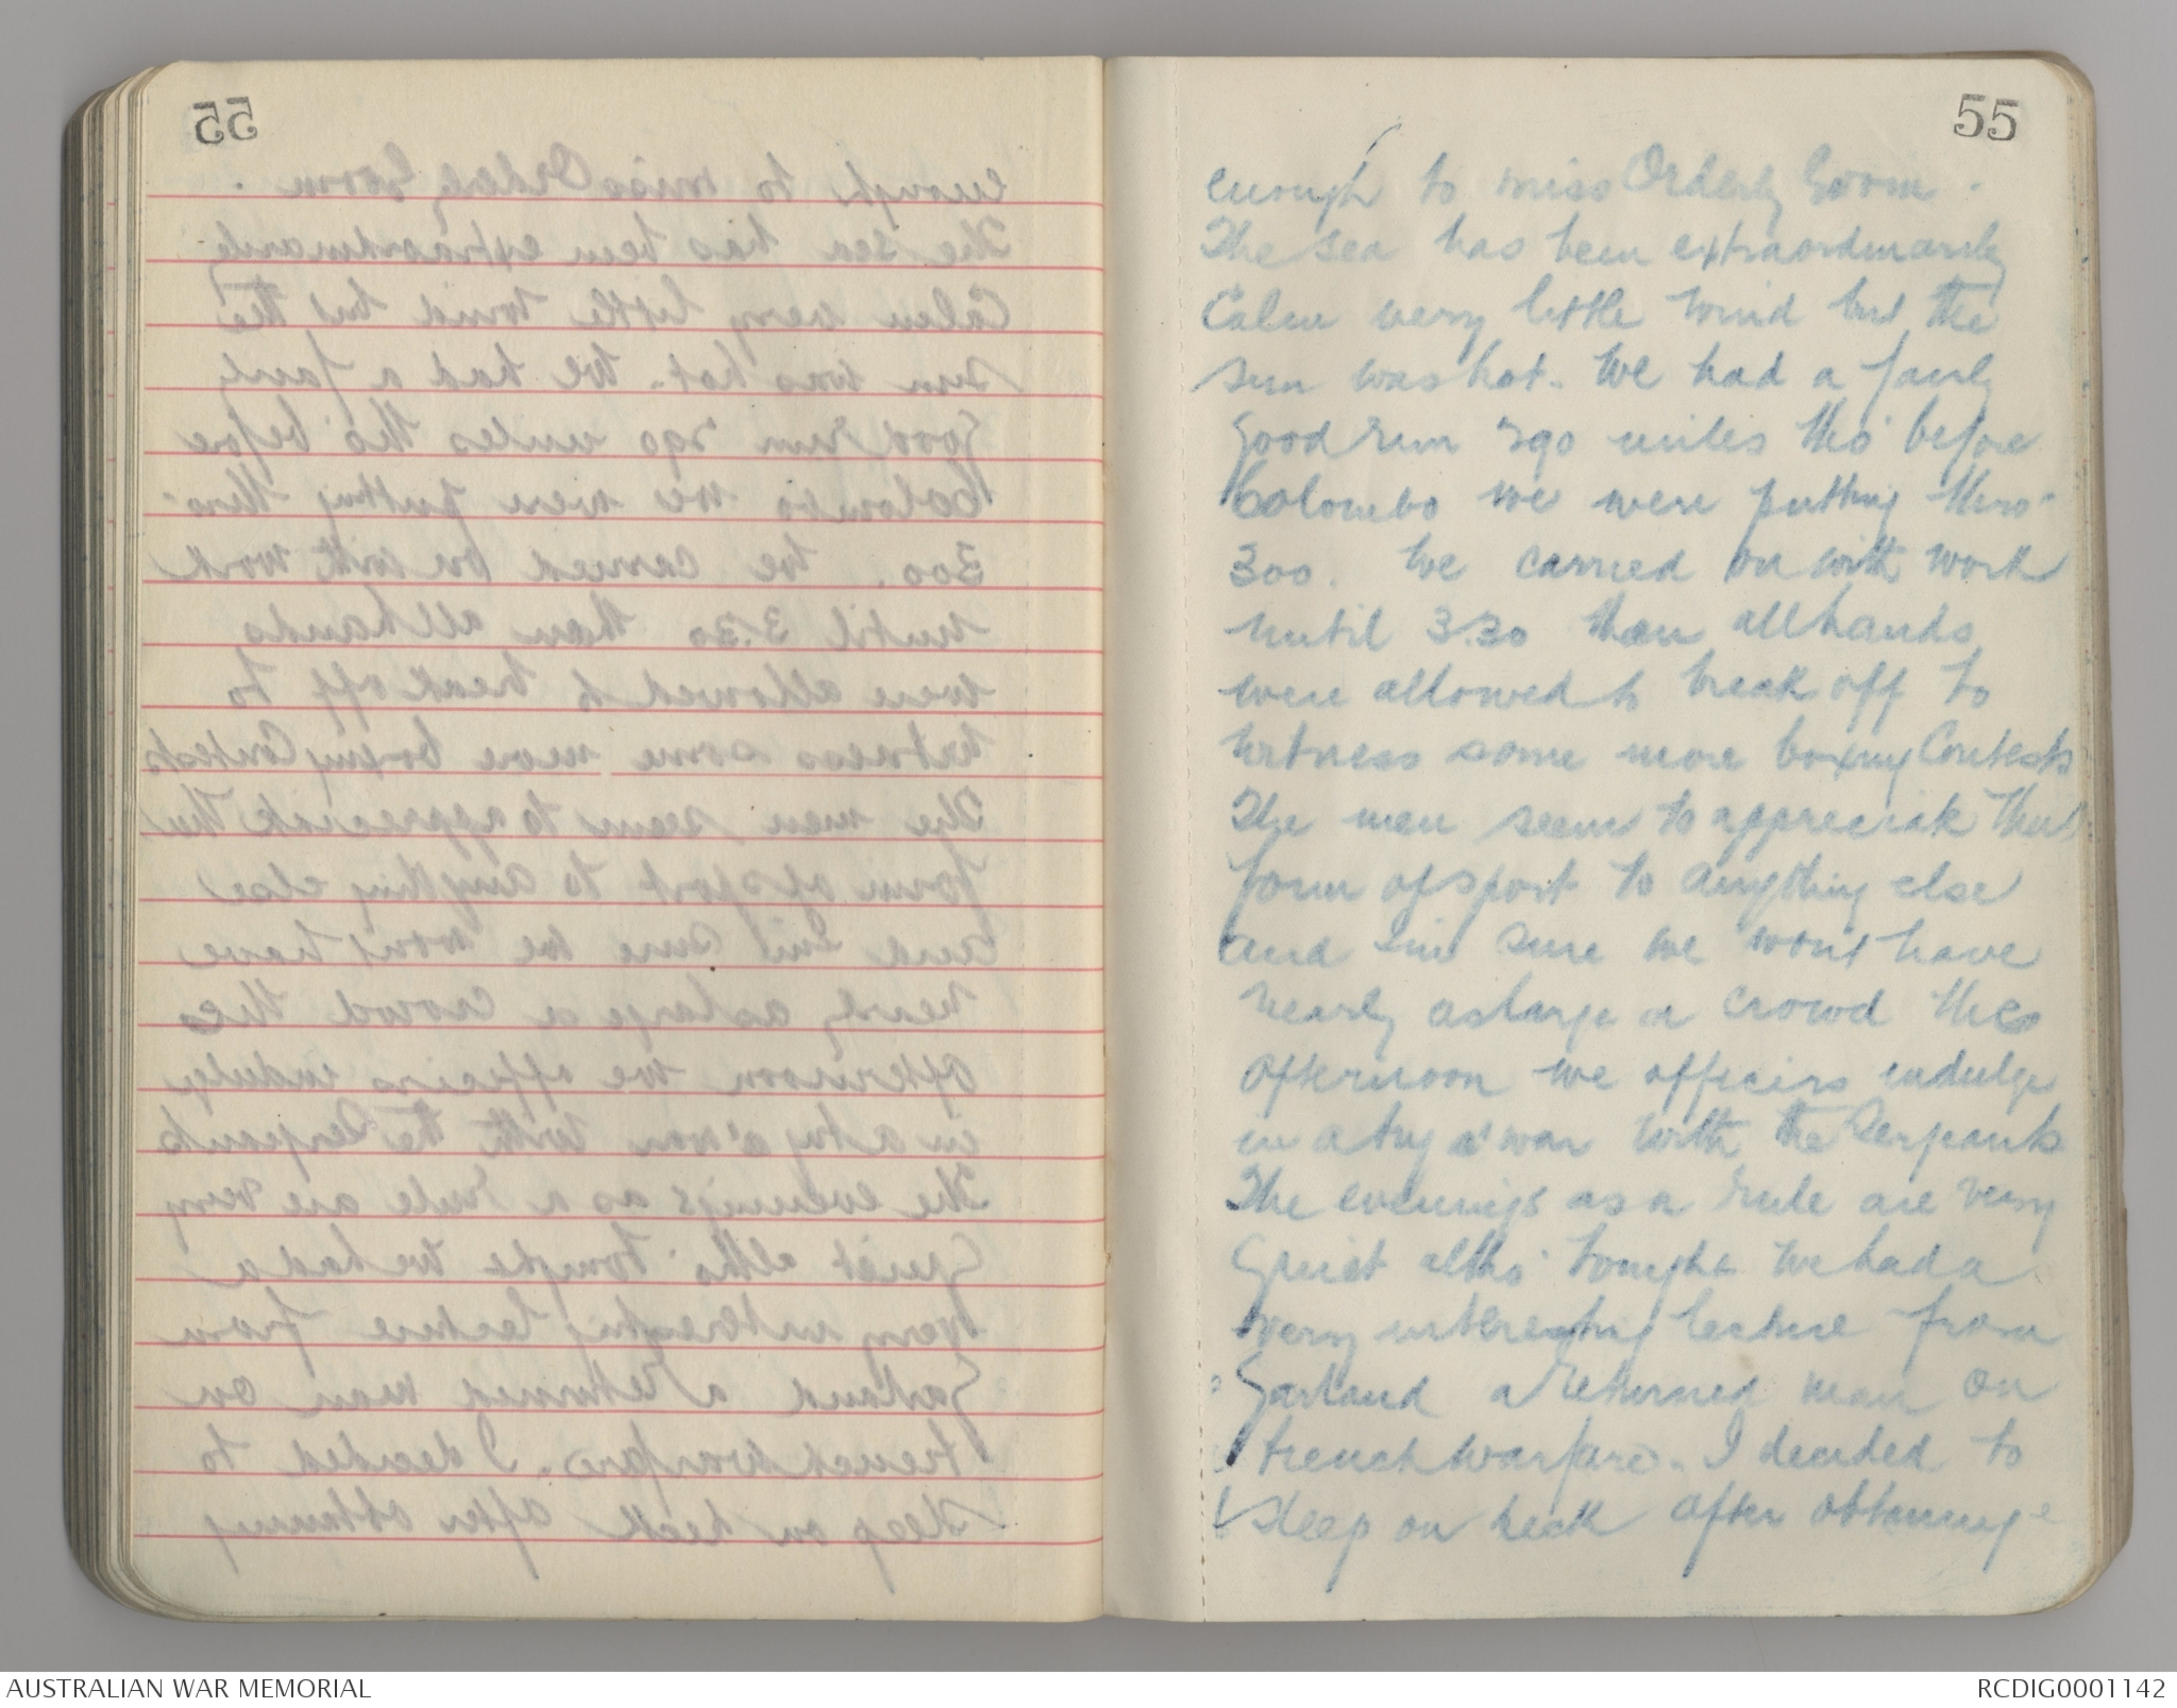 55
55
enough to miss Orderly Room.
The sea has been extraordinarily
Calm very little wind but the
sun was hot. We had a fairly
good run 290 miles tho' before
Colombo we were putting thro'
300. We carried on with work
until 3.30 then all hands
were allowed to break off to
witness some more boxing Contests
The men seem to appreciate this
form of sport to anything else
and I'm sure we won't have
nearly as large a crowd this
afternoon we officers indulge
in a tug o' war with the Sergeants
The evenings as a rule are very
Quiet altho' tonight we had a
very interesting lecture from
Garland a returned man on
trench warfare. I decided to
sleep on deck after obtaining
AUSTRALIAN WAR MEMORIAL
RCDIG0001142